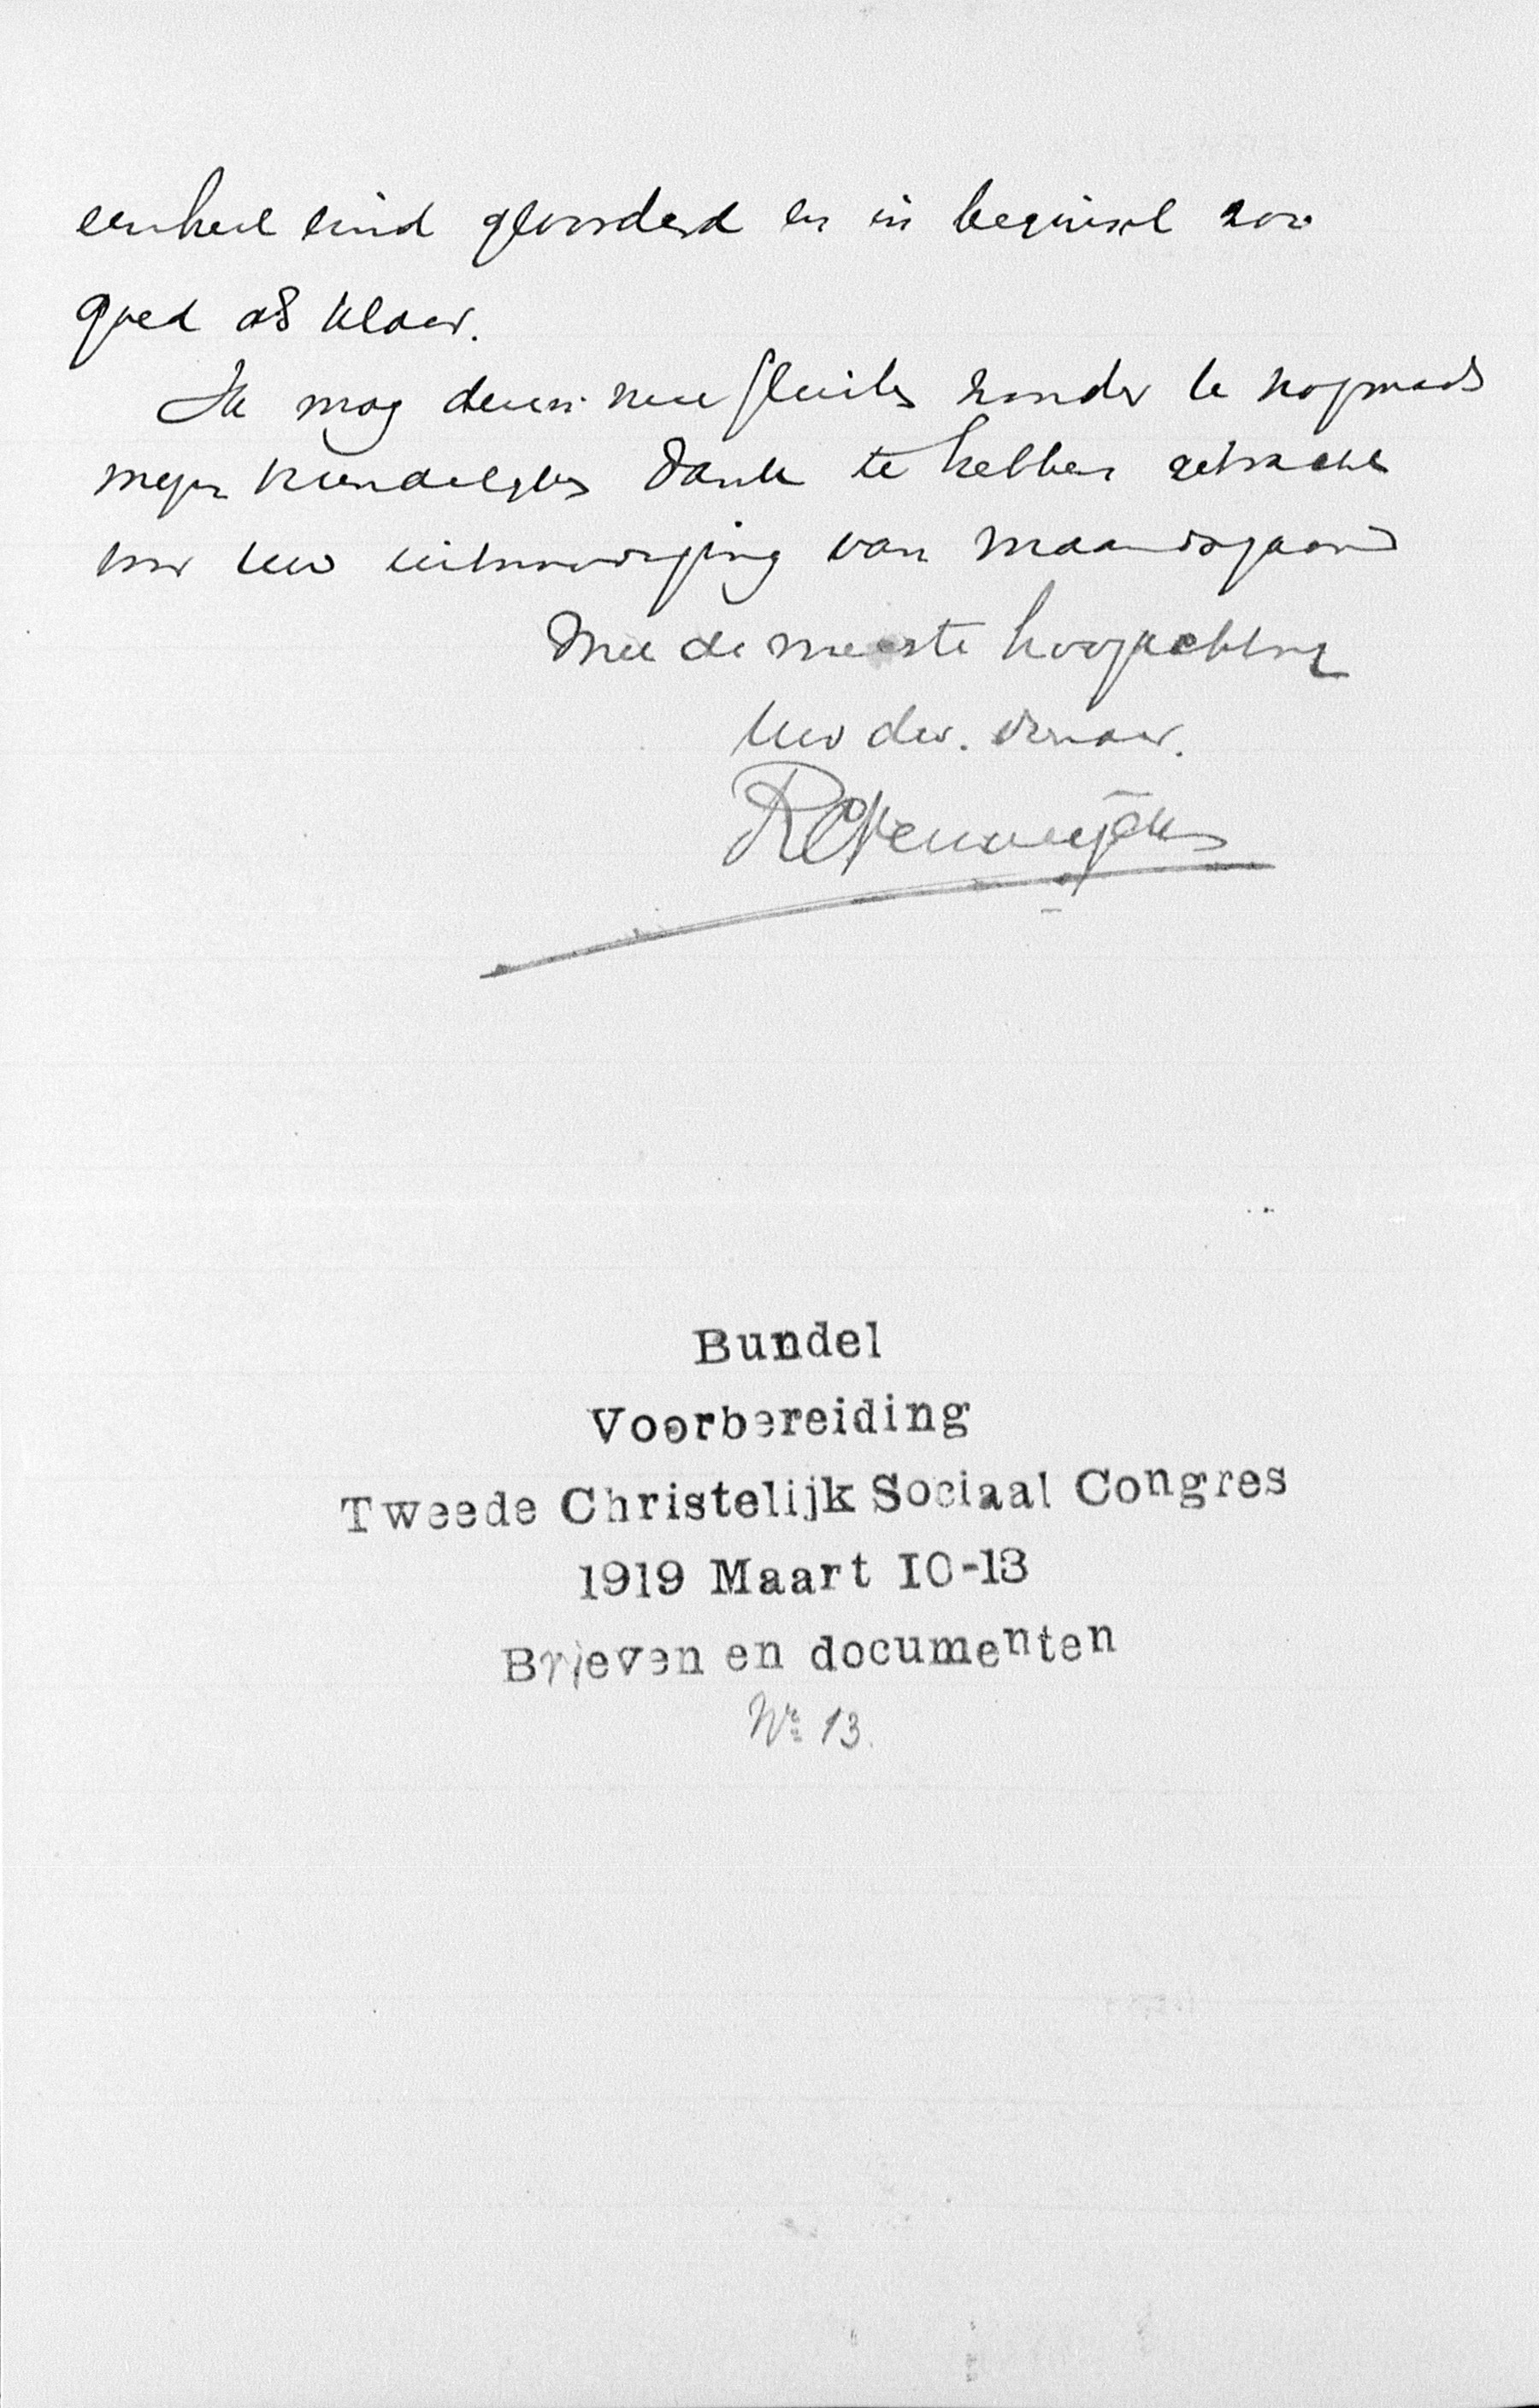 eenheid eind gevorderd en in beginsel zoo
goed als klaar.
Ik mag deze niet sluiten zonder U nogmaals
mijn vriendelijken dank te hebben gebracht
voor Uw uitnoodiging van Maandagavond
Met de meeste hoogachting
Uw dw. dienaar.
Bundel
Voorbereiding
Tweede Christelijk Sociaal Congres
1919 Maart 10-13
Brieven en documenten
Nr 13.